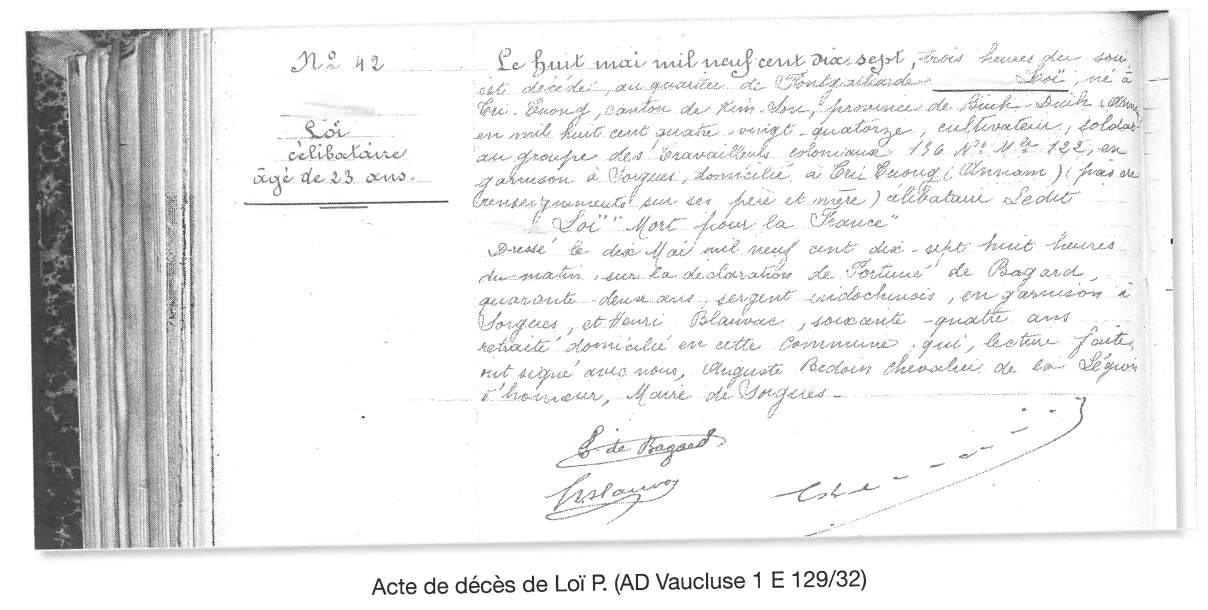 Nº 42
Loï
célibataire
âgé de 23 ans.
Le huit mai mil neuf cent dix sept, trois heures du soir
est décédé, au quartier de Fontgaillarde Loï, né à
Tri-Cuong, canton de Kim-Son, province de Binh Dinh (Annam
en mil huit cent quatre-vingt-quatorze, cultivateur, soldat
au groupe des travailleurs coloniaux 136 Nº Mle 122, en
garnison à Sorgues, domicilié à Tri Cuong (Annam) (pas de
renseignements sur ses père et mère) célibataire Ledit
Loï "Mort pour la France"
Dressé le dix Mai mil neuf cent dix-sept huit heures
du matin, sur la déclaration de Fortuné de Bagard,
quarante-deux ans, sergent indochinois, en garnison à
Sorgues, et Henri Blauvac, soixante-quatre ans
retraité domicilié en cette commune, qui, lecture faite,
ont signé avec nous, Auguste Bédoin chevalier de la Légion
d'honneur, Maire de Sorgues.
de Bagard
Blauvac
Acte de décès de Loï P. (AD Vaucluse 1 E 129/32)